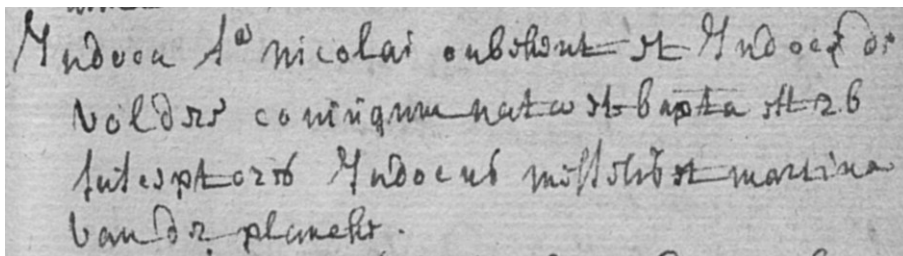 Judoca fa nicolai onbekent et Judocę de
volder coniugum nata et bapta est 26
susceptores Judocus et martina
van der plancke.